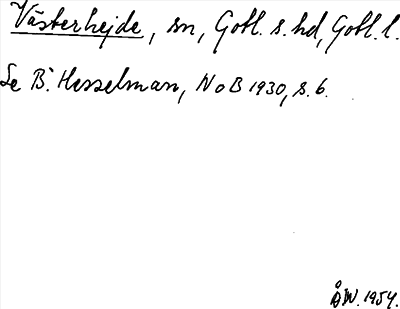 Västerhejde, sn, Gotl. s. hd, Gotl. l.
Se B. Hesselman, NoB 1930, s. 6.
ÅW. 1954.